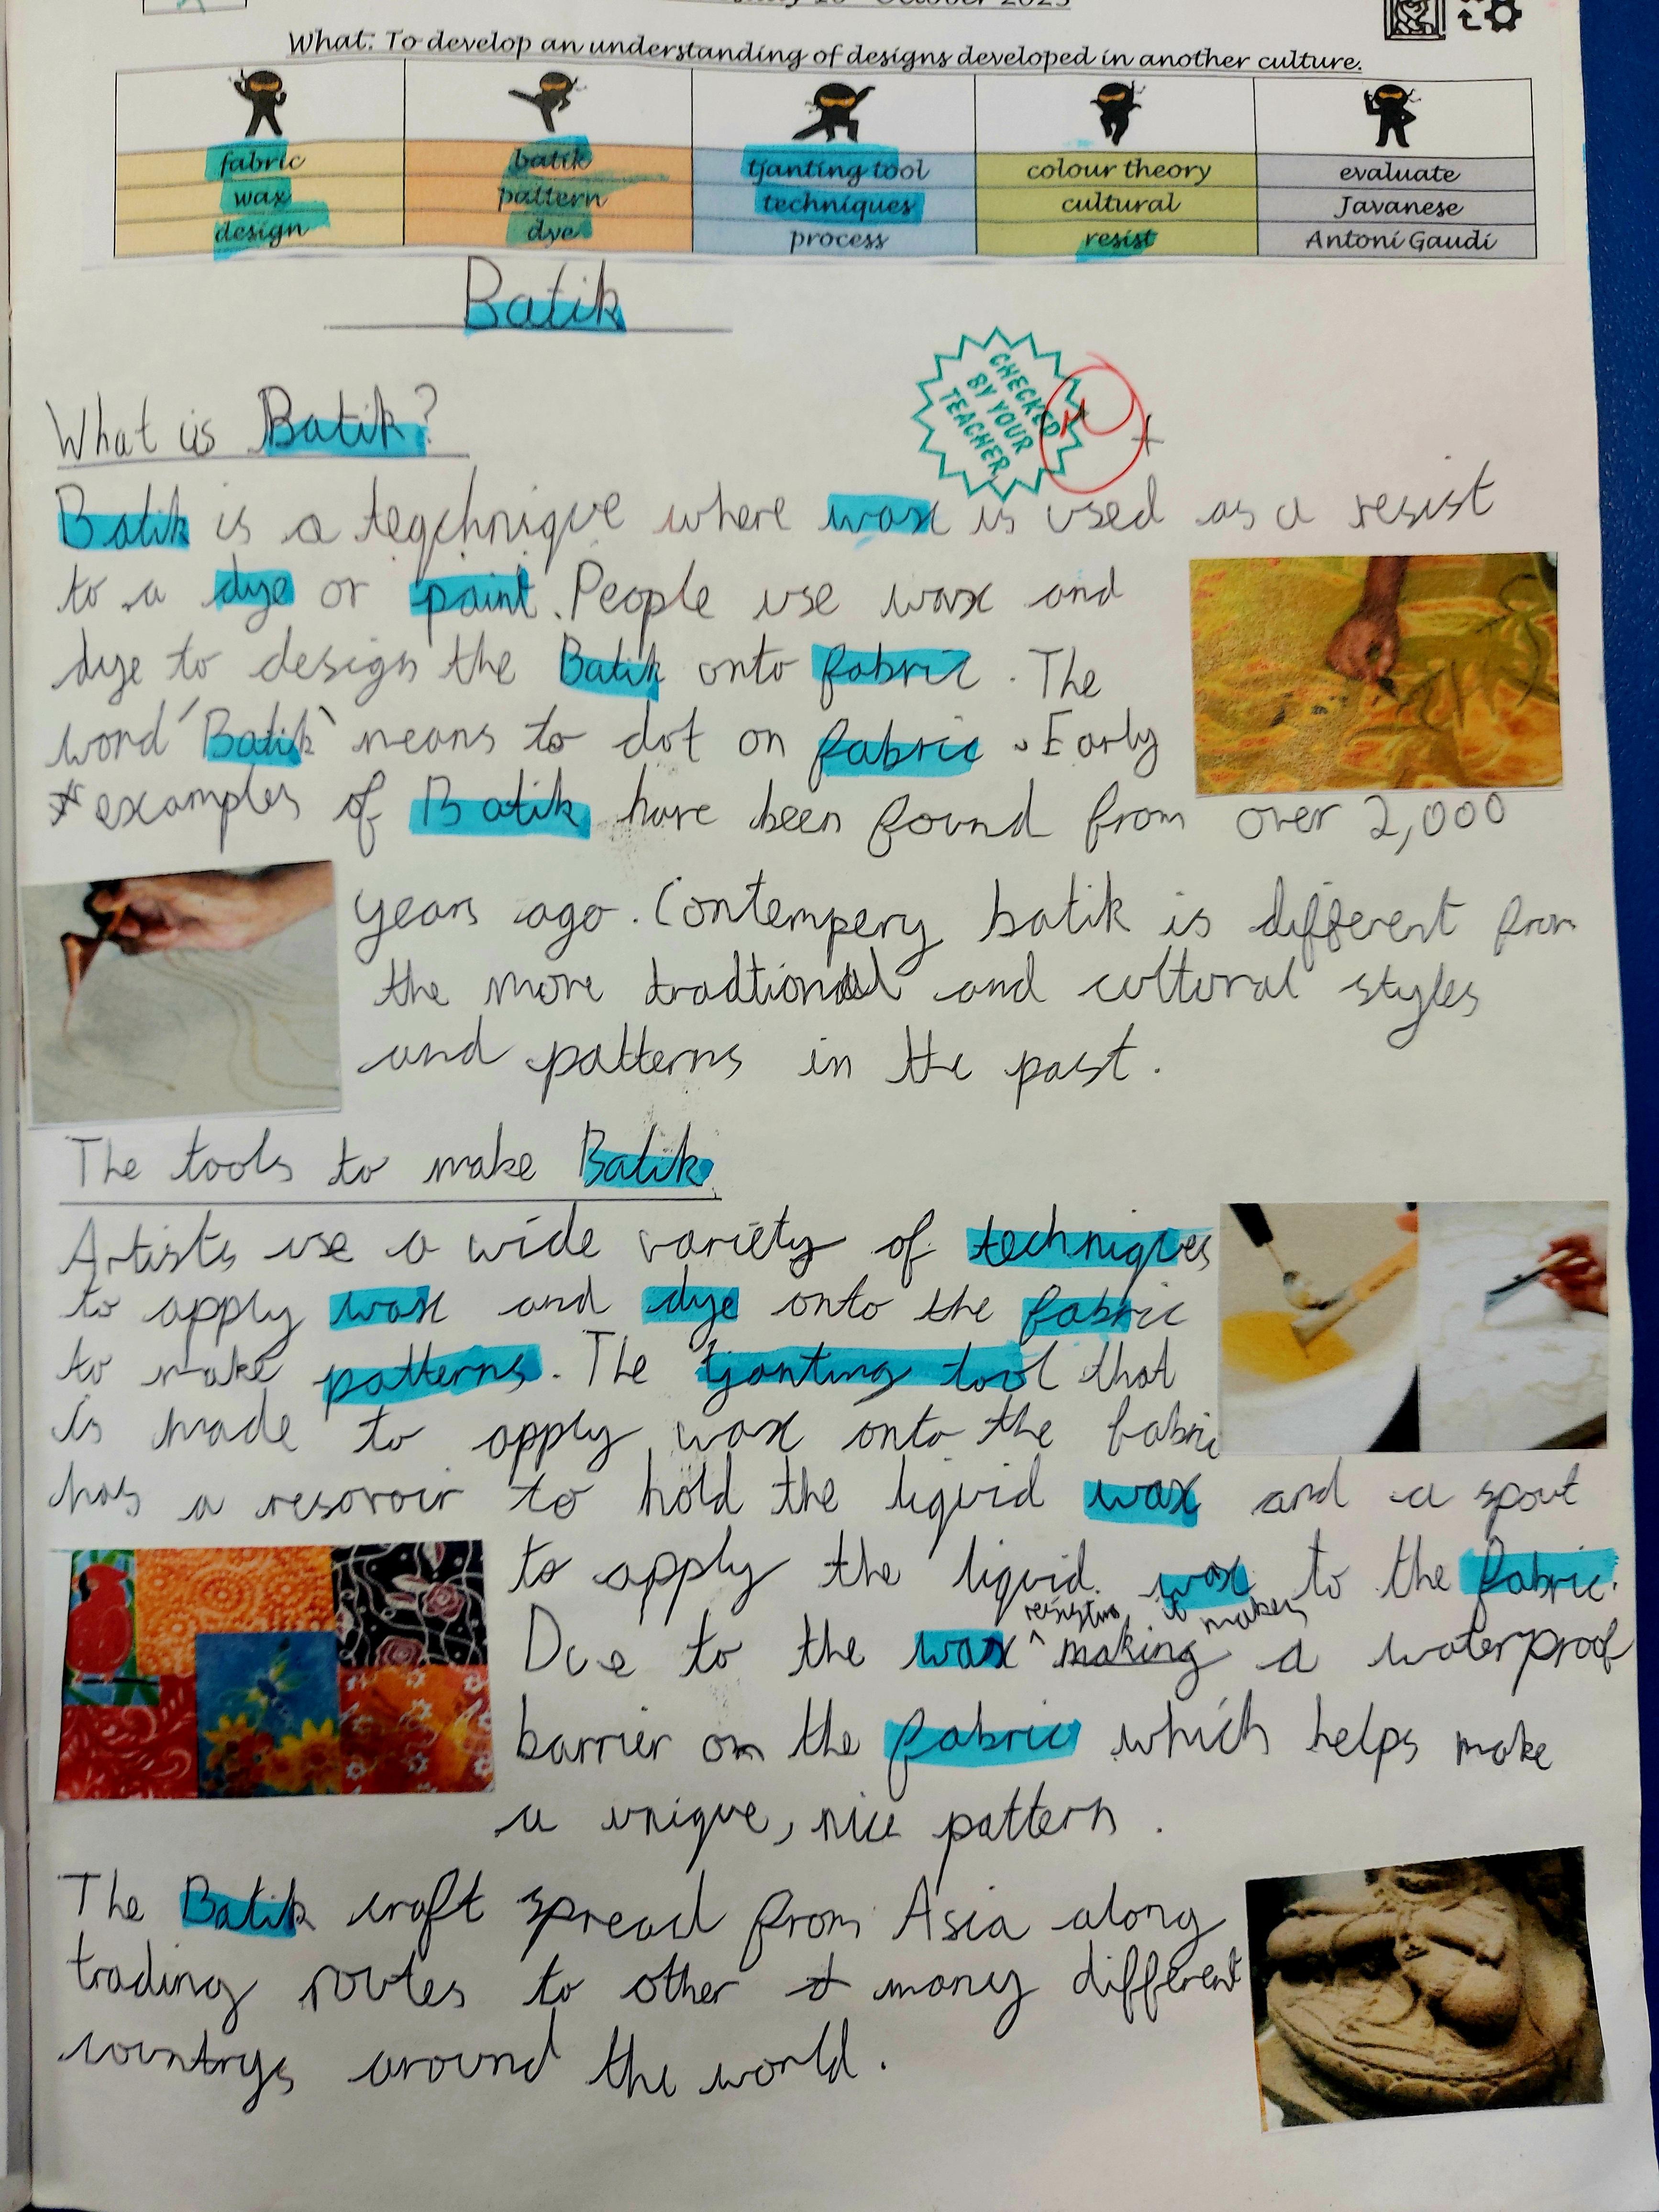 October 2025
What: To develop an understanding of designs developed in another culture.
fabric batik tjanting tool colour theory evaluate
wax pattern techniques cultural Javanese
design dye process resist Antoni Gaudi
Batik
CHECKED
BY YOUR
TEACHER
What is Batik?
Batik is a teqchnique where wax is used as a resist
to a dye or paint. People use wax and
dye to design the Batik onto fabric. The
word 'Batik' means to dot on fabric. Early
examples of Batik have been found from over 2,000
years ago. Contempery batik is different from
the more tradtional and cultural styles
and patterns in the past.
The tools to make Batik
Artists use a wide variety of techniques
to apply wax and dye onto the fabric
to make patterns. The tjanting tool that
is made to apply wax onto the fabric
has a resovoir to hold the liquid wax and a spout
to apply the liquid wax to the fabric.
resisting it makes
Due to the wax ^ making a waterproof
barrier on the fabric which helps make
a unique, nice pattern.
The Batik craft spread from Asia along
trading routes to other many different
countrys around the world.